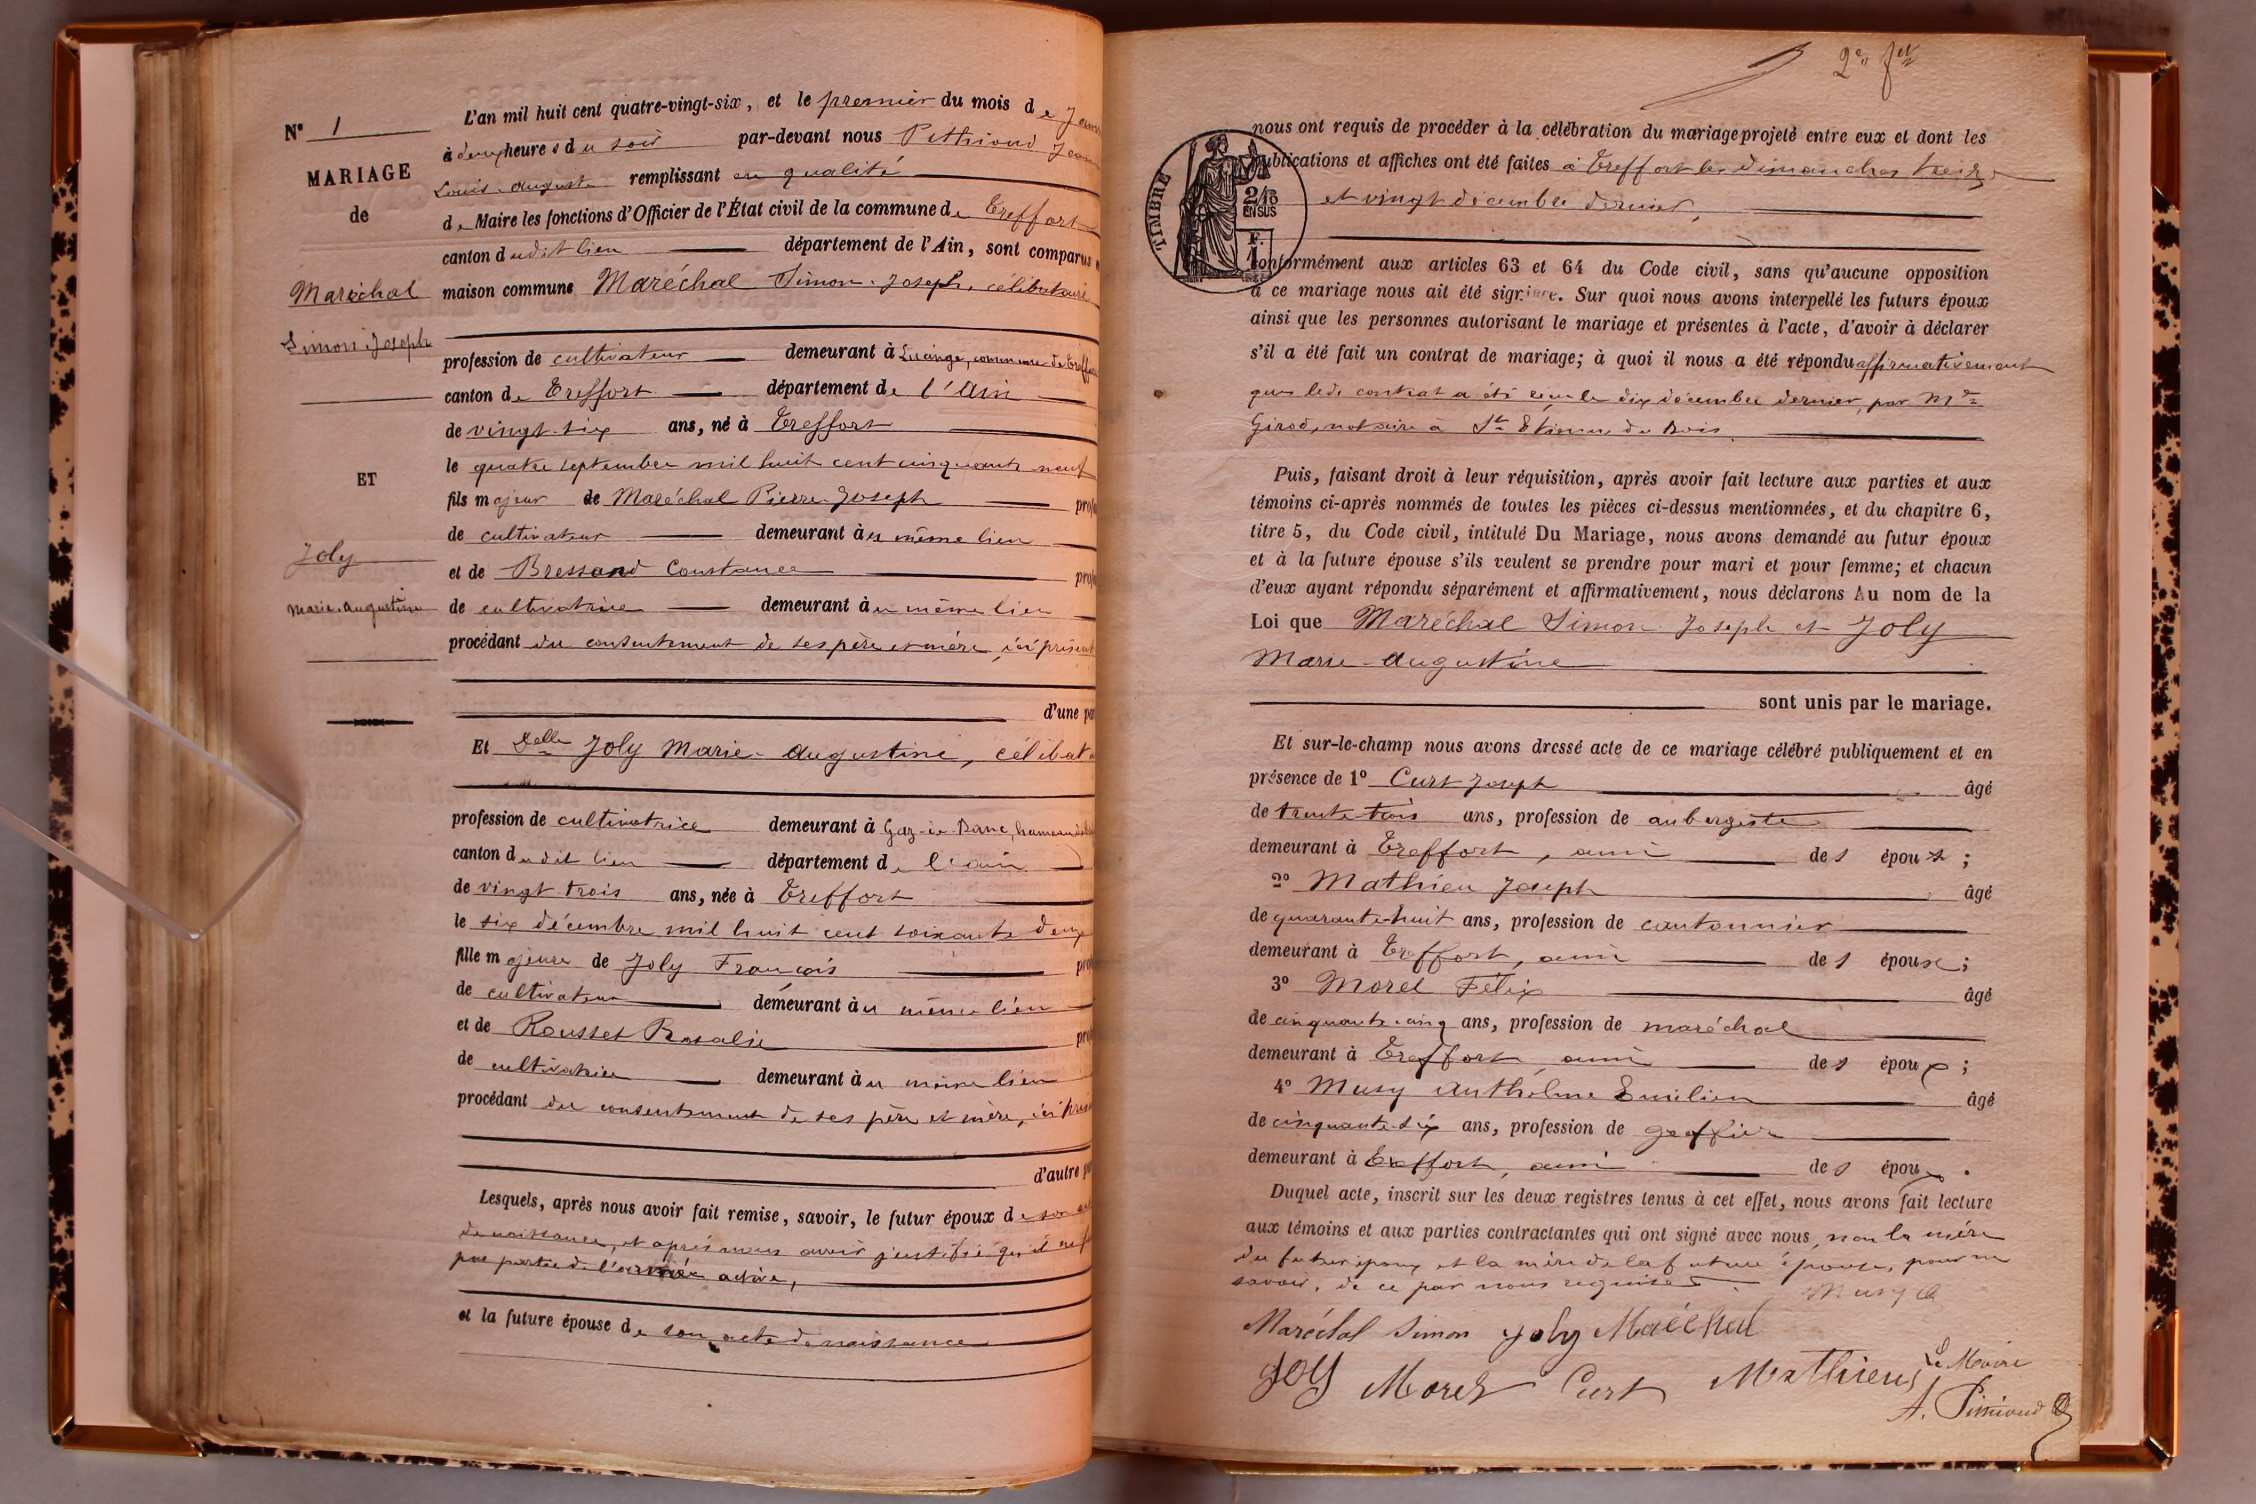 N° 1
MARIAGE
de
Maréchal
Simon-Joseph
ET
Joly
Marie-Augustine
L'an mil huit cent quatre-vingt-six, et le premier du mois de
à deux heures du soir par-devant nous Jean
Louis-Auguste remplissant en qualité
de Maire les fonctions d'Officier de l'État civil de la commune de Treffort
canton dudit lieu département de l'Ain, sont comparus
maison commune Maréchal Simon-Joseph, célibataire
profession de cultivateur demeurant à commune de
canton de Treffort département de l'Ain
de vingt-six ans, né à Treffort
le quatre septembre mil huit cent cinquante neuf
fils majeur de Maréchal Pierre-Joseph
de cultivateur demeurant au même lieu
et de Bressand Constance
de cultivatrice demeurant au même lieu
procédant du consentement de ses père et mère, ici
d'une
Et Delle Joly Marie-Augustine,
profession de cultivatrice demeurant à hameau
canton dudit lieu département de l'Ain
de vingt trois ans, née à Treffort
le six décembre mil huit cent soixante deux
fille majeure de Joly François
de cultivateur demeurant au même lieu
et de Rousset Rosalie
de cultivatrice demeurant au même lieu
procédant du consentement de ses père et mère, ici
d'autre
Lesquels, après nous avoir fait remise, savoir, le futur époux de son
de naissance, et après nous avoir justifié qu'il
pas partie de l'armée active,
et la future épouse de son acte de naissance
2e fet
TIMBRE
2/10
EN SUS
F.
nous ont requis de procéder à la célébration du mariage projeté entre eux et dont les
publications et affiches ont été faites à Treffort les dimanches treize
et vingt décembre dernier,
conformément aux articles 63 et 64 du Code civil, sans qu'aucune opposition
à ce mariage nous ait été signifiée. Sur quoi nous avons interpellé les futurs époux
ainsi que les personnes autorisant le mariage et présentes à l'acte, d'avoir à déclarer
s'il a été fait un contrat de mariage; à quoi il nous a été répondu affirmativement
que ledt contrat a été reçu le dix décembre dernier, par Me
Girod, notaire à St Etienne du Bois
Puis, faisant droit à leur réquisition, après avoir fait lecture aux parties et aux
témoins ci-après nommés de toutes les pièces ci-dessus mentionnées, et du chapitre 6,
titre 5, du Code civil, intitulé Du Mariage, nous avons demandé au futur époux
et à la future épouse s'ils veulent se prendre pour mari et pour femme; et chacun
d'eux ayant répondu séparément et affirmativement, nous déclarons Au nom de la
Loi que Maréchal Simon-Joseph et Joly
Marie-Augustine
sont unis par le mariage.
Et sur-le-champ nous avons dressé acte de ce mariage célébré publiquement et en
présence de 1° Curt Joseph âgé
de trente-trois ans, profession de aubergiste
demeurant à Treffort, ami des époux;
2° Mathieu Joseph âgé
de quarante-huit ans, profession de cantonnier
demeurant à Treffort, ami des époux;
3° Morel Félix âgé
de cinquante-cinq ans, profession de maréchal
demeurant à Treffort, ami des époux;
4° Musy Anthelme Emilien âgé
de cinquante-six ans, profession de greffier
demeurant à Treffort, ami des époux.
Duquel acte, inscrit sur les deux registres tenus à cet effet, nous avons fait lecture
aux témoins et aux parties contractantes qui ont signé avec nous, non la mère
du futur époux et la mère de la future épouse, pour ne
savoir, de ce par nous requises
Musy
Maréchal Simon Joly Maréchal
Joly Morel Curt Mathieu Le Maire